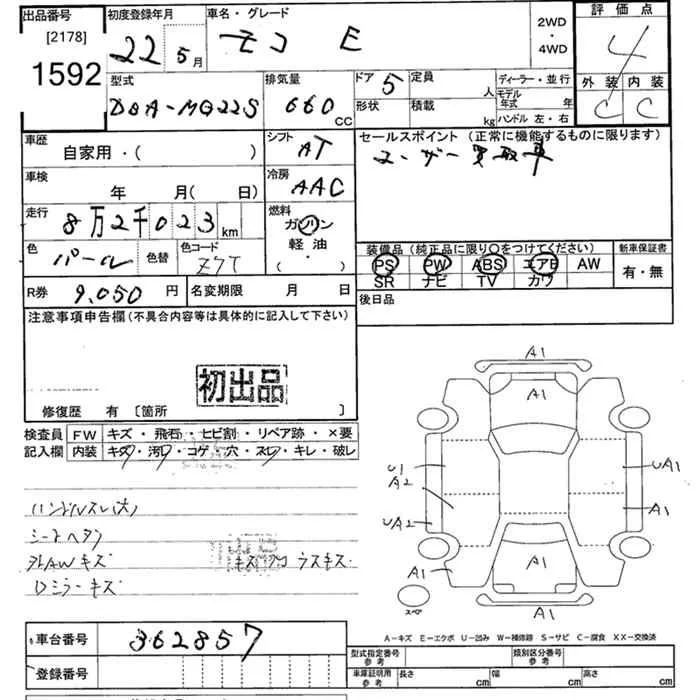 出品番号
[2178]
1592
初度登録年月
22 5月
車名・グレード
モコ E
2WD
・
4WD
評価点
4
外装 内装
C C
型式
DBA-MG22S
排気量
660 CC
ドア 5
定員 人
形状
積載 kg
ディーラー・並行
モデル年式 年
ハンドル 左・右
車歴
自家用・( )
シフト
AT
セールスポイント(正常に機能するものに限ります)
ユーザー買取車
車検
年 月( 日)
冷房
AAC
走行
8万2千023 km
燃料
ガソリン
軽油
・
( )
色
パール
色替
色コード
Z7T
装備品(純正品に限り○をつけてください)
PS PW ABS エアB AW
SR ナビ TV カワ
新車保証書
有・無
R券 9,050 円
名変期限 月 日
後日品
注意事項申告欄(不具合内容等は具体的に記入して下さい)
初出品
修復歴 有 [箇所 ]
検査員
記入欄
FW キズ・飛石・ヒビ割・リペア跡・×要
内装 キズ・汚レ・コゲ・穴・スレ・キレ・破レ
ハンドルスレ(大)
シートヘタリ
外AWキズ
Dミラーキズ
A1
A1
U1
A2
UA2
UA1
A1
A1
A1
A1
A1
スペア
A-キズ E-エクボ U-凹み W-補修跡 S-サビ C-腐食 XX-交換済
車台番号 362857
登録番号
型式指定番号
参考
類別区分番号
参考
車庫証明用
参考
長さ cm
幅 cm
高さ cm